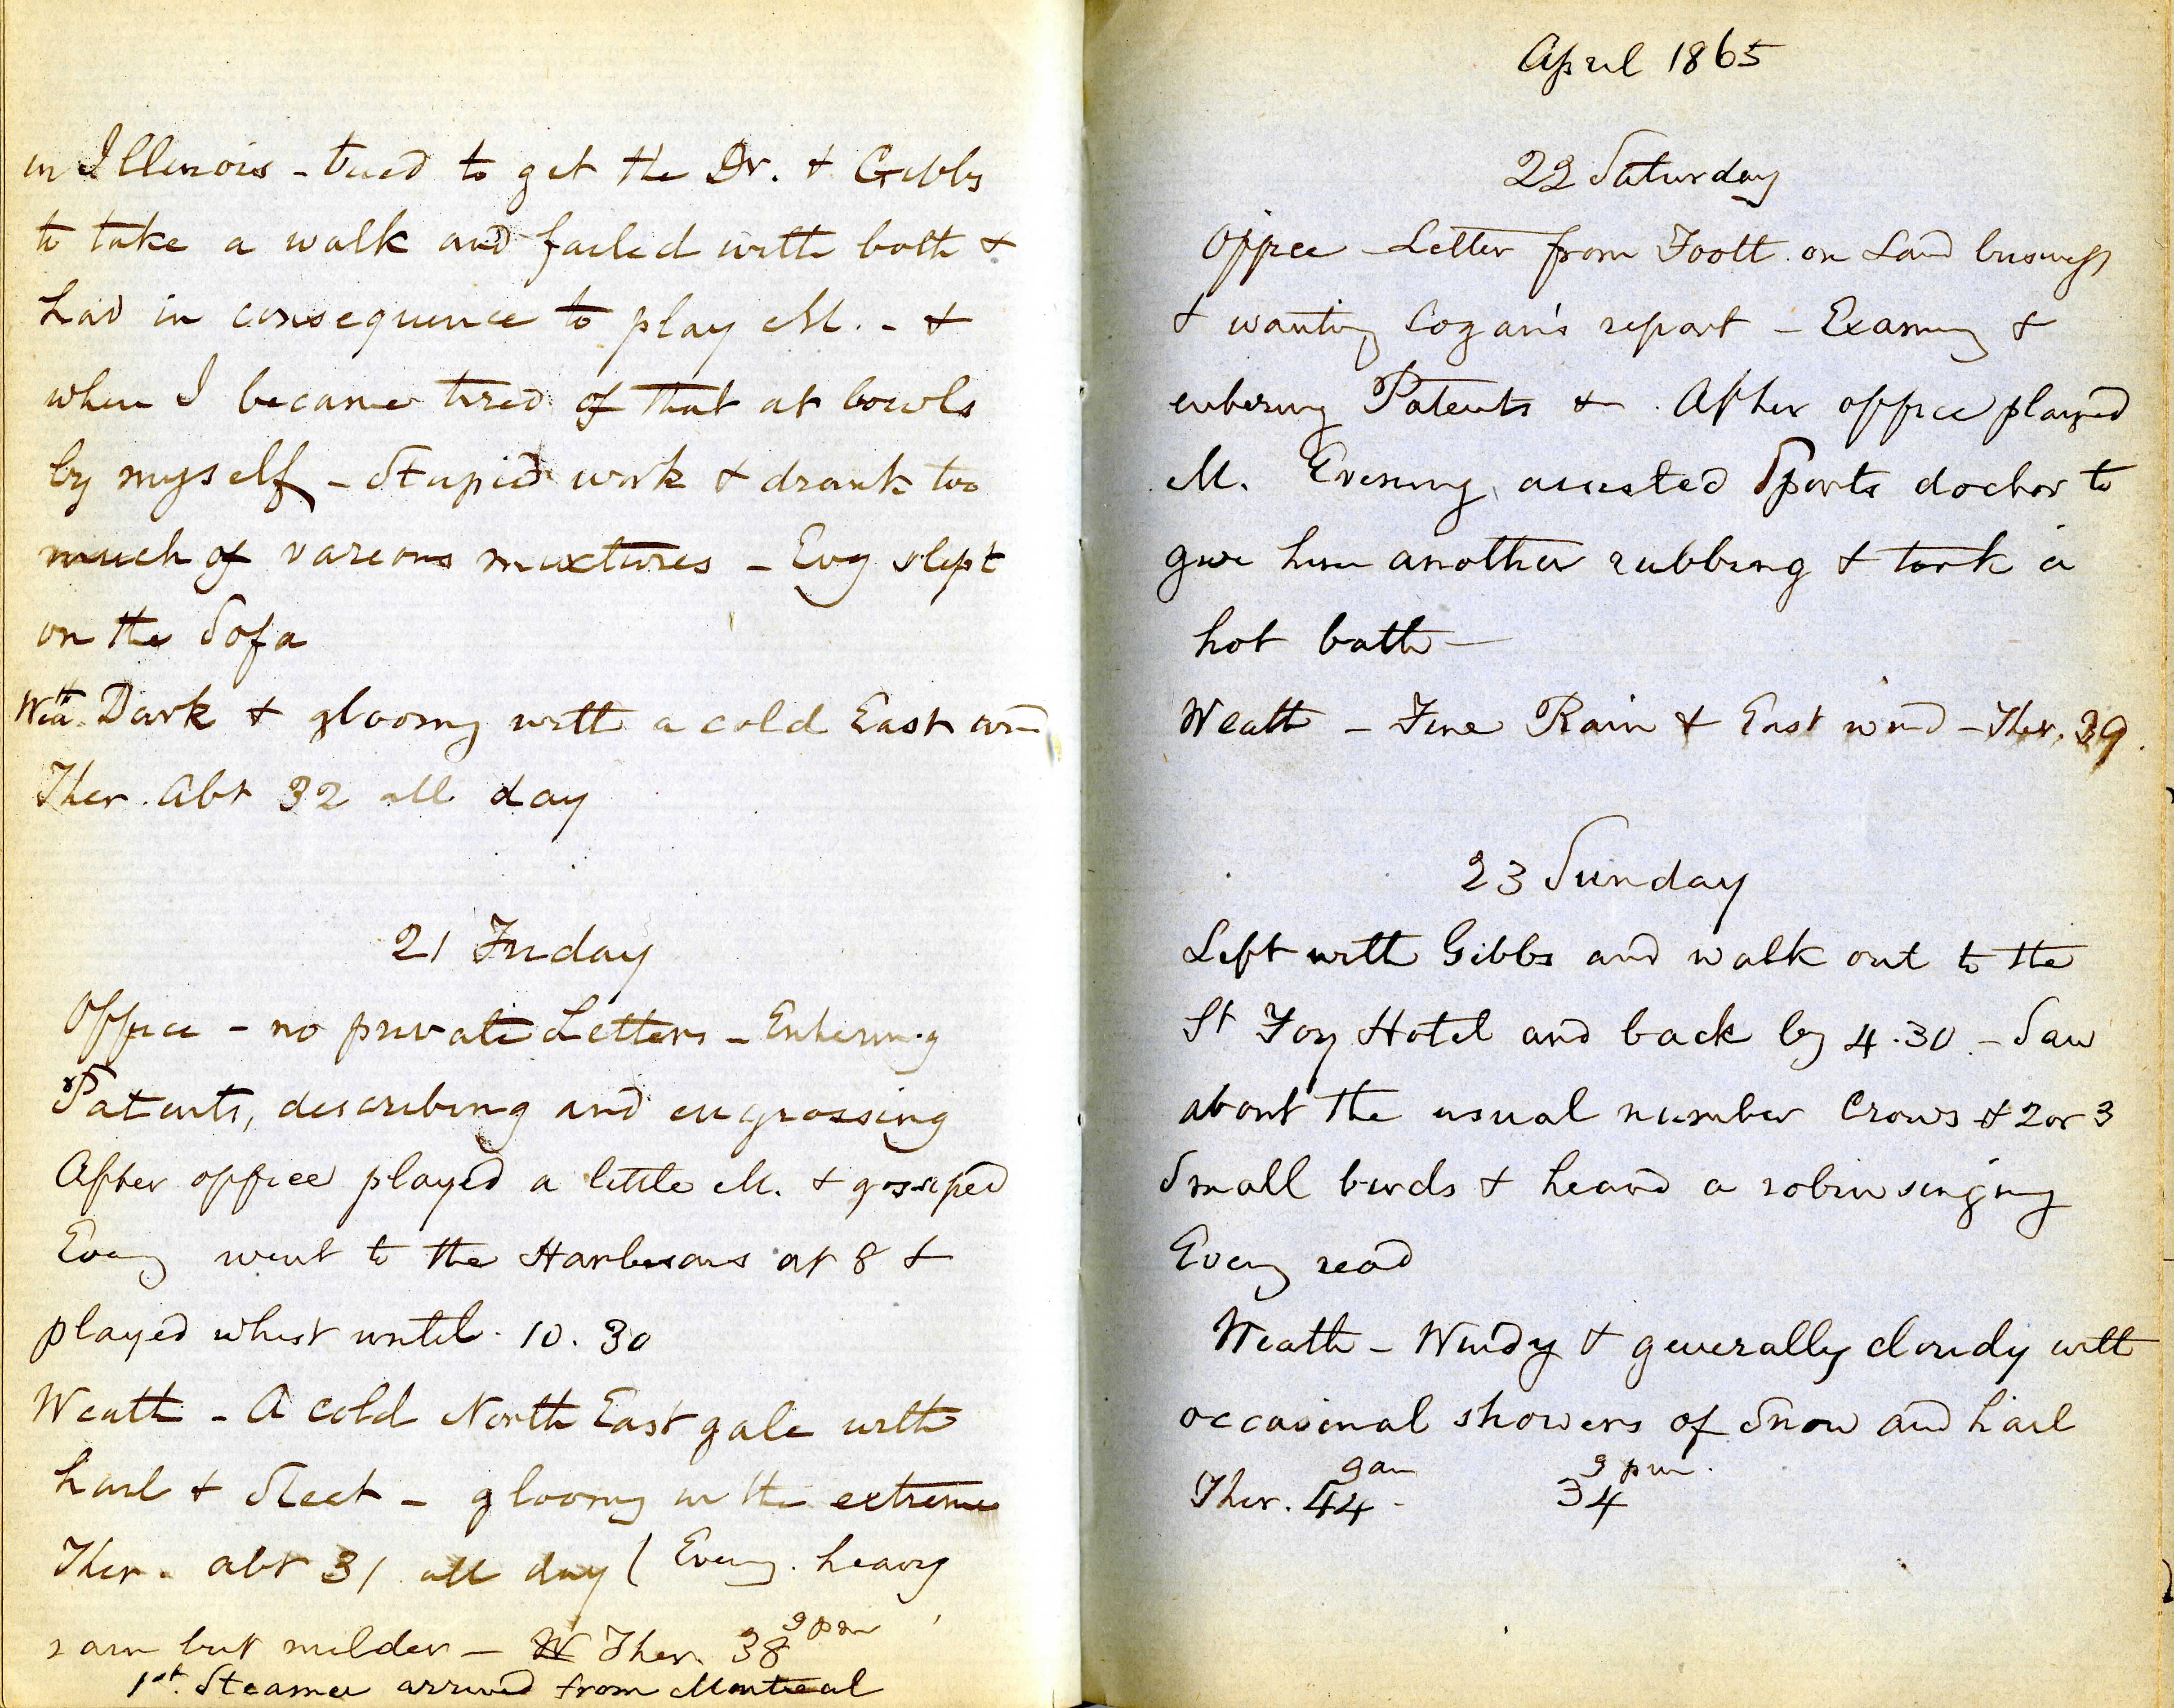 in Illinois - tried to get the Dr. & Gibbs
to take a walk and failed with both &
had in consequence to play M. - &
when I became tired of that at bowls
by myself - Stupid work & drank too
much of various mixtures - Evg slept
on the Sofa
Weath. Dark & gloomy with a cold East wind
Ther. Abt 32 all day
21 Friday
Office - no private Letters - Entering
Patents, describing and engrossing
After office played a little M. & gossiped
Eveng went to the Harbesons at 8 &
played whist until 10.30
Weath - A cold North East gale with
hail & Sleet - gloomy in the extreme
Ther. abt 31 all day ( Eveng. heavy
rain but milder - W Ther. 38 9 pm
1st. Steamer arrived from Montreal
April 1865
22 Saturday
Office - Letter from Foott on Land business
& wanting Logan's report - Examing &
entering Patents & . After office played
M. Evening assisted Sports doctor to
give him another rubbing & took a
hot bath -
Weath - Fine Rain & East wind - Ther. 39.
23 Sunday
Left with Gibbs and walk out to the
St Foy Hotel and back by 4.30 - Saw
about the usual number Crows & 2 or 3
Small birds & heard a robin singing
Eveng read
Weath - Windy & generally cloudy with
occasional showers of Snow and hail
9 am 9 pm.
Ther. 44 - 34